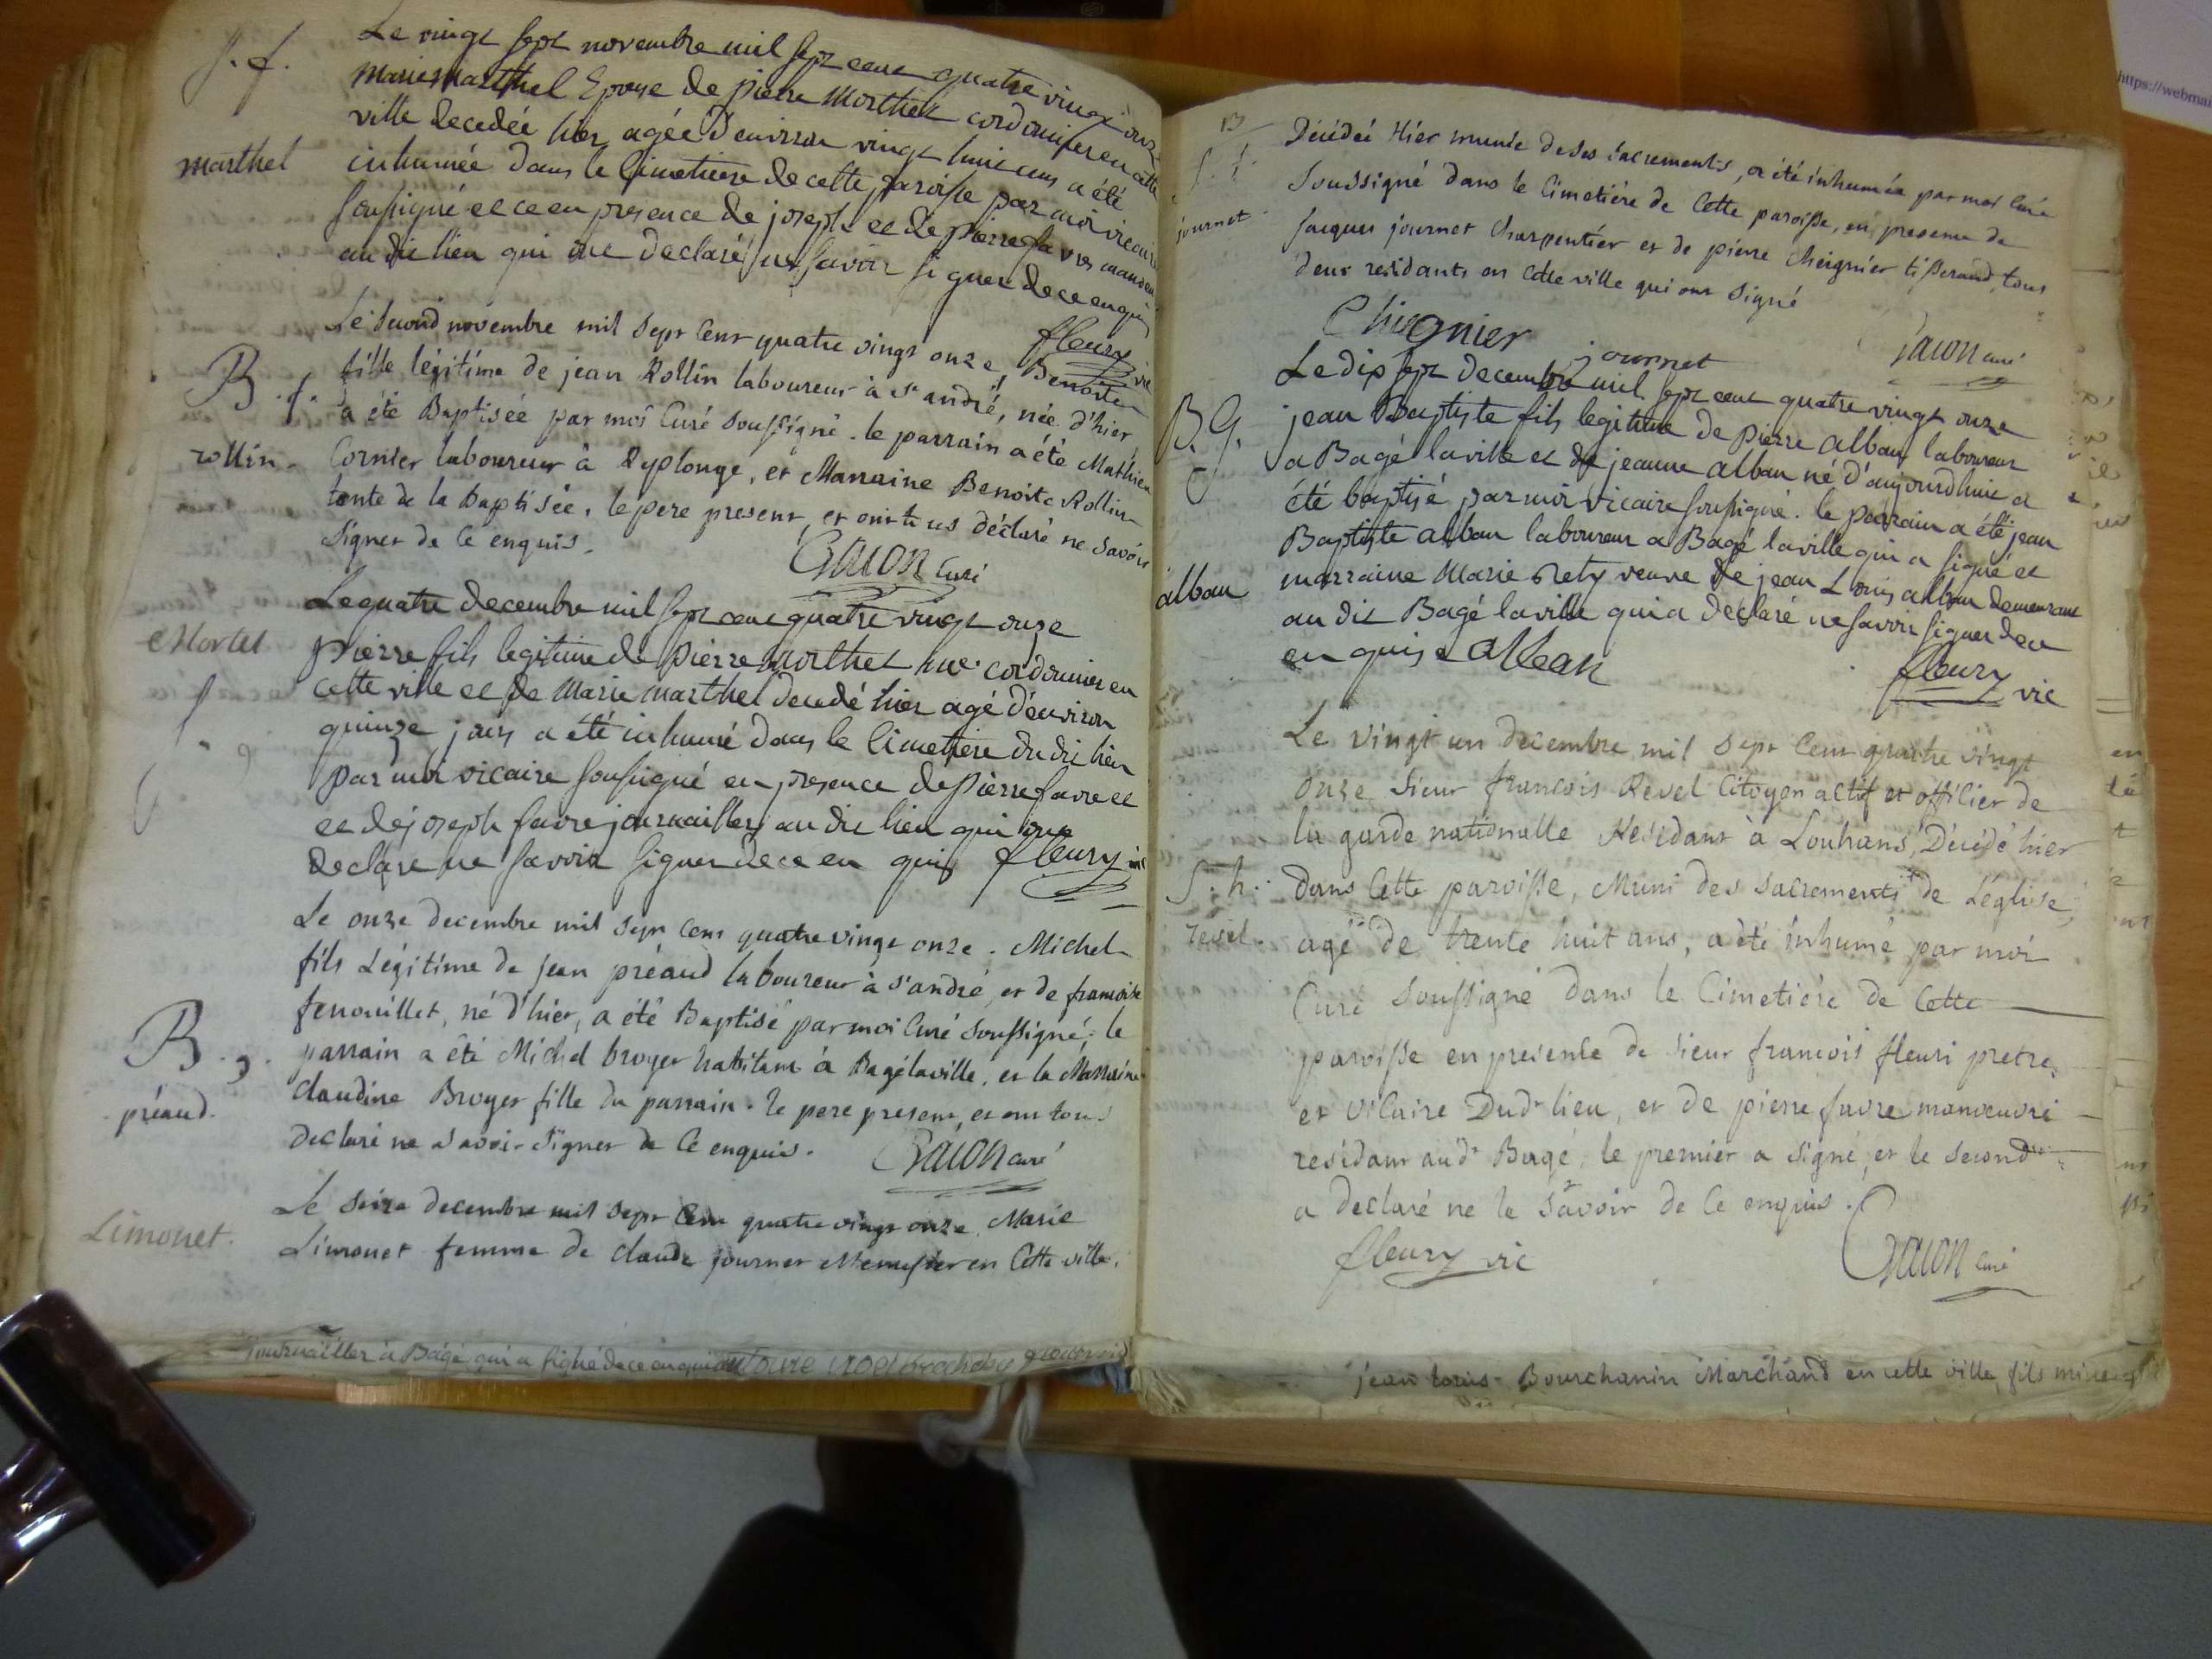 S. f.
Le vingt sept novembre mil sept cent quatre vingt onze
Marie Marthel Epouse de pierre Morthel cordonnier en cette
ville decedée hier agée d'environ vingt huit ans a été
marthel
inhumée dans le Cimetiere de cette paroisse par moi vicaire
soussigné et ce en presence de joseph et de pierre favre manœu
au dit lieu qui ont declaré ne savoir signer de ce enquis
fleury vic
Le Second novembre mil sept Cent quatre vingt onze, Benoite
B. f.
fille légitime de jean Rollin laboureur à st andré, née d'hier,
a été Baptisée par moi Curé soussigné. le parrain a été Mathieu
rollin.
Cornier laboureur à Replonge, et Marraine Benoite Rollin
tente de la baptisée. le pere present, et ont tous déclaré ne savoir
signer de Ce enquis.
Gacon Curé
Le quatre decembre mil sept cent quatre vingt onze
Mortel
Pierre fils legitime de Pierre Morthel me. cordonnier en
cette ville et de Marie marthel decedé hier agé d'environ
quinze jours a été inhumé dans le Cimetiere du dit lieu
par moi vicaire soussigné en presence de Pierre favre et
et de joseph favre journaillers au dit lieu qui ont
declare ne savoir signer de ce en quis fleury vic
Le onze decembre mil sept Cent quatre vingt onze. Michel
fils Légitime de jean préaud laboureur à st andré, et de francoise
fenouillet, né d'hier, a été Baptisé par moi Curé soussigné; le
B. g.
parrain a été Michel broyer habitant à Bagélaville, et la Marraine
préaud.
Claudine Broyer fille du parrain. le pere present, et ont tous
declaré ne savoir signer de Ce enquis.
Gacon curé
Le seize decembre mil sept Cent quatre vingt onze. Marie
Limonet.
Limonet femme de claude journet Menusier en Cette ville,
journailler à Bâgé qui a signé de ce enquis
13
Décédée Hier munie de ses sacrements, a été inhumée par moi Curé
S. f.
Soussigné dans le Cimetiére de Cette paroisse, en presence de
journet
Jacques journet Charpentier et de pierre Cheignier tisserand, tous
deux residants en Cette ville qui ont Signé
Chignier
journet
Gacon curé
Le dix sept decembre mil sept cent quatre vingt onze
B. G.
jean Baptiste fils legitime de Pierre alban laboureur
a Bagé laville et de jeanne alban né d'aujourdhui a
été baptisé par moi vicaire soussigné. le parrain a été jean
Baptiste alban laboureur a Bagé laville qui a signé et
alban
marraine Marie Rety veuve de jean Louis alban demeurant
au dit Bagé laville qui a declaré ne savoir signer de ce
en quis alban
fleury vic
Le vingt un decembre mil sept Cent quatre vingt
onze Sieur francois Revel Citoyen actif et officier de
la garde nationalle Residant à Louhans, Décédé hier
S. h.
dans Cette paroisse, Muni des sacrements de L'église,
revel.
agé de trente huit ans, a été inhumé par moi
Curé Soussigné dans le Cimetière de Cette
paroisse en presence de sieur francois fleuri pretre,
et vicaire Dudt lieu, et de pierre favre manœuvre
residant audt Bagé, le premier a signé, et le second
a declaré ne le savoir de Ce enquis.
fleury vic
Gacon Curé
jean louis Bourchanin Marchand en cette ville fils mineur
https://webmai